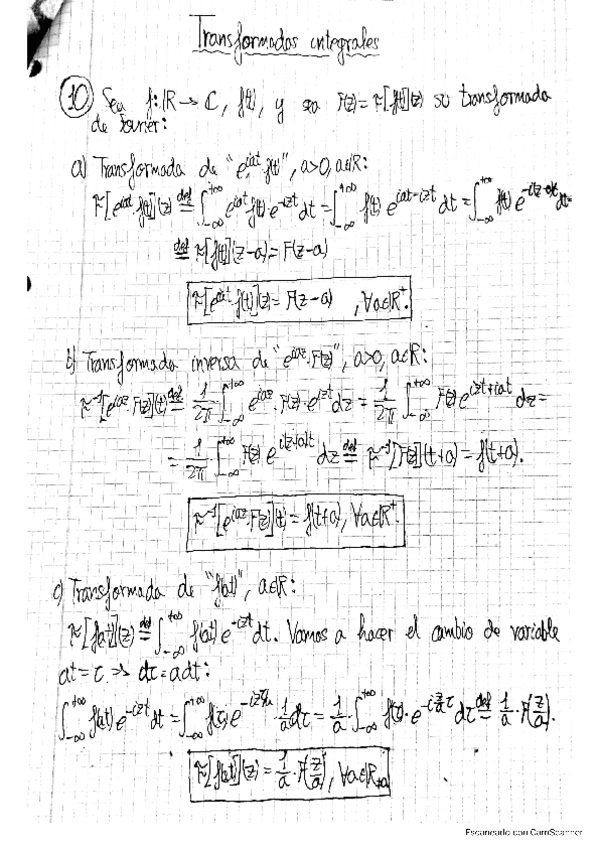 Transformadas integrales
10 Sea f: ℝ → ℂ, f(t), y sea F(z) = F[f(t)](z) su transformada
de Fourier:
a) Transformada de "e^{iat}·f(t)", a>0, a∈ℝ:
F[e^{iat}·f(t)](z) =^{def} ∫_{-∞}^{+∞} e^{iat} f(t)·e^{-izt} dt = ∫_{-∞}^{+∞} f(t) e^{iat-izt} dt = ∫_{-∞}^{+∞} f(t) e^{-i(z-a)t} dt
=^{def} F[f(t)](z-a) = F(z-a)
F[e^{iat}·f(t)](z) = F(z-a) , ∀a∈ℝ⁺.
b) Transformada inversa de "e^{iaz}·F(z)", a>0, a∈ℝ:
F^{-1}[e^{iaz}·F(z)](t) =^{def} 1/2π ∫_{-∞}^{+∞} e^{iaz}·F(z)·e^{izt} dz = 1/2π ∫_{-∞}^{+∞} F(z) e^{izt+iat} dz =
= 1/2π ∫_{-∞}^{+∞} F(z) e^{i(z+a)t} dz =^{def} F^{-1}[F(z)](t+a) = f(t+a).
F^{-1}[e^{iaz}·F(z)](t) = f(t+a), ∀a∈ℝ⁺.
c) Transformada de "f(at)", a∈ℝ:
F[f(at)](z) =^{def} ∫_{-∞}^{+∞} f(at) e^{-izt} dt. Vamos a hacer el cambio de variable
at = τ ⇒ dτ = a dt:
∫_{-∞}^{+∞} f(at) e^{-izt} dt = ∫_{-∞}^{+∞} f(τ) e^{-izτ/a}·1/a dτ = 1/a·∫_{-∞}^{+∞} f(τ)·e^{-i z/a τ} dτ =^{def} 1/a·F(z/a).
F[f(at)](z) = 1/a·F(z/a), ∀a∈ℝ
Escaneado con CamScanner